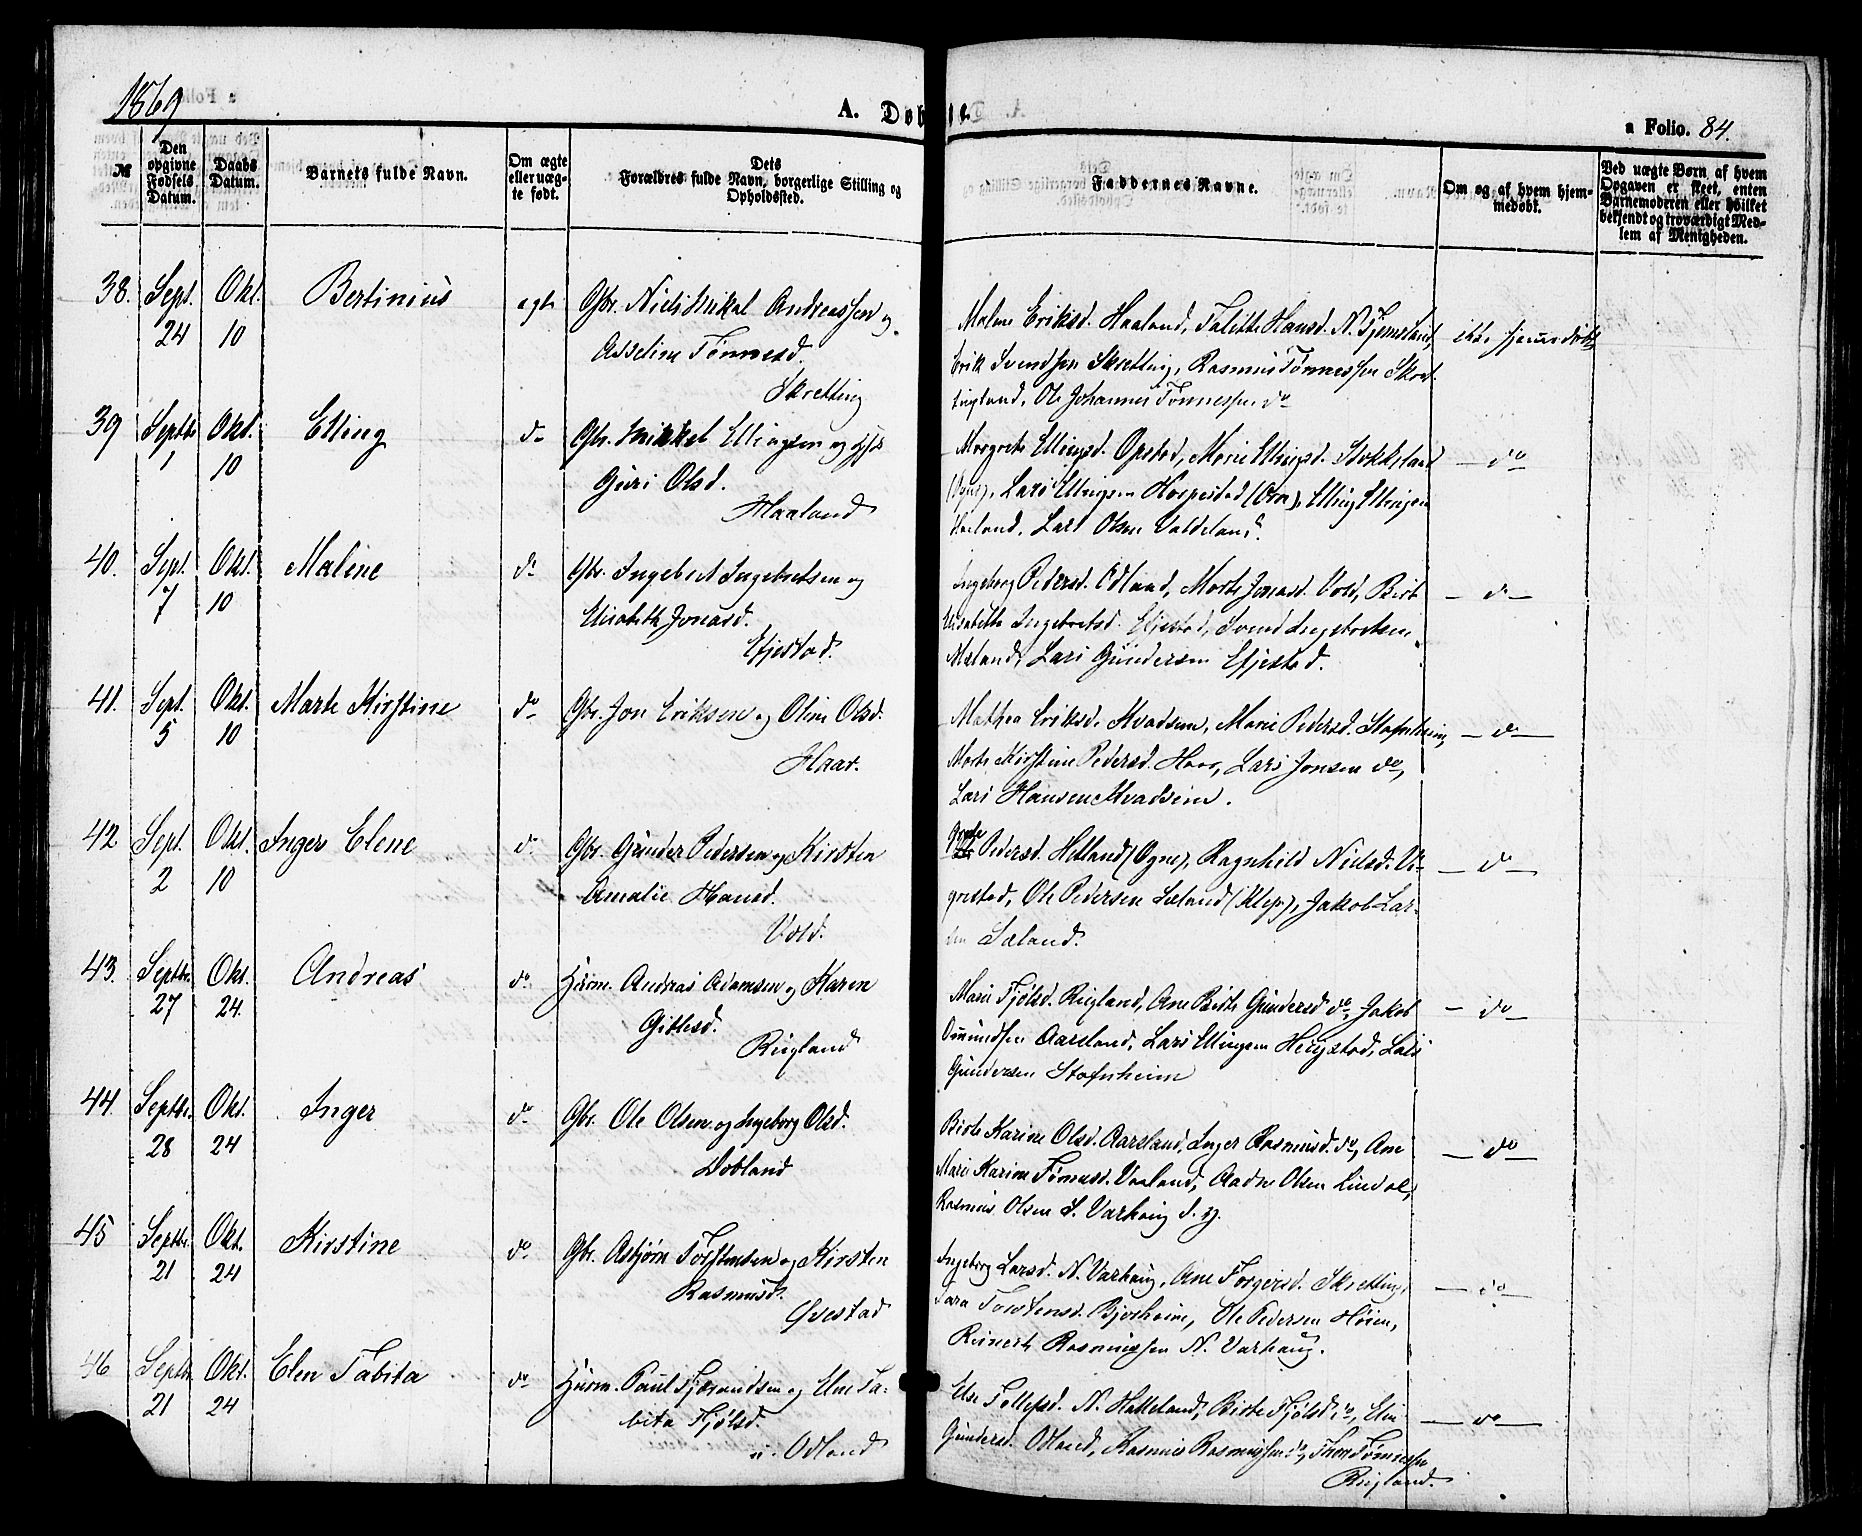 1869
A. Døbte.
a Folio. 84.
№
Den opgivne Fødsels Datum.
Daabs Datum.
Barnets fulde Navn.
Om ægte eller uægte født.
Dets Forældres fulde Navn, borgerlige Stilling og Opholdssted.
Faddernes Navne.
Om og af hvem hjemmedøbt.
Ved uægte Børn af hvem Opgaven er skeet, enten Barnemoderen eller hvilket bekjendt og troværdigt Medlem af Menigheden.
38. Sept. 24 Okt. 10 Bertinius ægte
Gbr. Niels Mikal Andreassen og
Asseline Tønnesd.
Skretting
Malene Eriksd. Haaland, Talette Hansd. N. Tjemsland,
Erik Svendsen Skretting, Rasmus Tønnessen Skret-
tingland, Ole Johannes Tønnessen do
ikke hjemmedøbt
39 Septbr 1 Okt. 10 Elling do
Gbr. Mikkel Ellingsen og
Guri Olsd.
Haaland
Margrete Ellingsd. Opstad, Marie Ellingsd. Stokkeland
(Ogne), Lars Ellingsen Horpestad (Orre), Elling Ellingsen
Haaland, Lars Olsen Valdeland.
— do
40. Sept. 7 Okt. 10 Maline do
Gbr. Ingebret Ingebretsen og
Elisabeth Jonasd.
Efjestad.
Ingeborg Pedersd. Ødland, Marte Jonasd. Vold, Birte
Elisabeth Ingebretsd. Efjestad, Svend Ingebretsen
Mæland, Lars Gundersen Efjestad.
— do —
41. Sept. 5 Okt. 10 Marte Kirstine do
Gbr. Jon Eriksen og Oline Olsd.
Haar.
Mathea Eriksd. Kvadsem, Marie Pedersd. Stafnheim,
Marte Kirstine Pedersd. Haar, Lars Jonsen do,
Lars Hansen Kvadseim.
— do —
42 Sept. 2 Okt. 10 Inger Elene do
Gbr. Gunder Pedersen og Kirsten
Amalie Hansd.
Vold.
Pedersd. Hetland (Ogne), Ragnhild Nielsd. Vi-
grestad, Ole Pedersen Sæland (Klep), Jakob Lar-
sen Sæland.
— do —
43. Septbr. 27 Okt. 24. Andreas do
Husm. Andreas Adamsen og Karen
Gitlesd.
Rugland
Marie Fjølsd. Rugland, Ane Birte Gundersd do, Jakob
Omundsen Aarsland, Lars Ellingsen Hergstad, Lars
Gundersen Stafnheim
— do —
44. Septbr. 28 Okt. 24 Inger do
Gbr. Ole Olsen og Ingeborg Olsd.
Dobland
Birte Karine Olsd. Aarsland, Inger Rasmusd. do, Ane
Marie Karine Tønnesd. Varland, Aadne Olsen Lindal,
Rasmus Olsen S. Varhaug
— do —
45 Septbr. 21 Okt. 24 Kirstine do
Gbr. Asbjørn Torstensen og Kirsten
Rasmusd.
Qvestad
Ingeborg Larsd. N. Varhaug, Ane Torgersd. Skretting,
Sara Torstensd. Bjorheim, Ole Pedersen Høien,
Reinert Rasmussen N. Varhaug.
— do —
46 Septbr 21 Okt. 24 Elen Tabita do
Husm. Paul Fjærandsen og Elen Ta-
bita Fjølsd.
u. Odland
Else Tollefsd. N. Hatteland, Birte Fjølsd do, Elen
Gundersd. Odland, Rasmus Rasmussen do, Thor Tønnessen
Rugland.
— do —